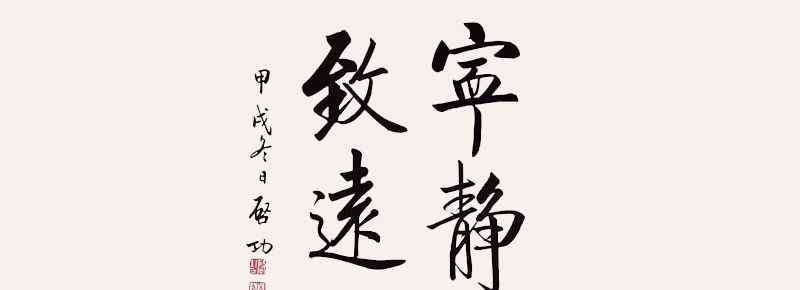 寧静
致遠
甲戌冬日启功